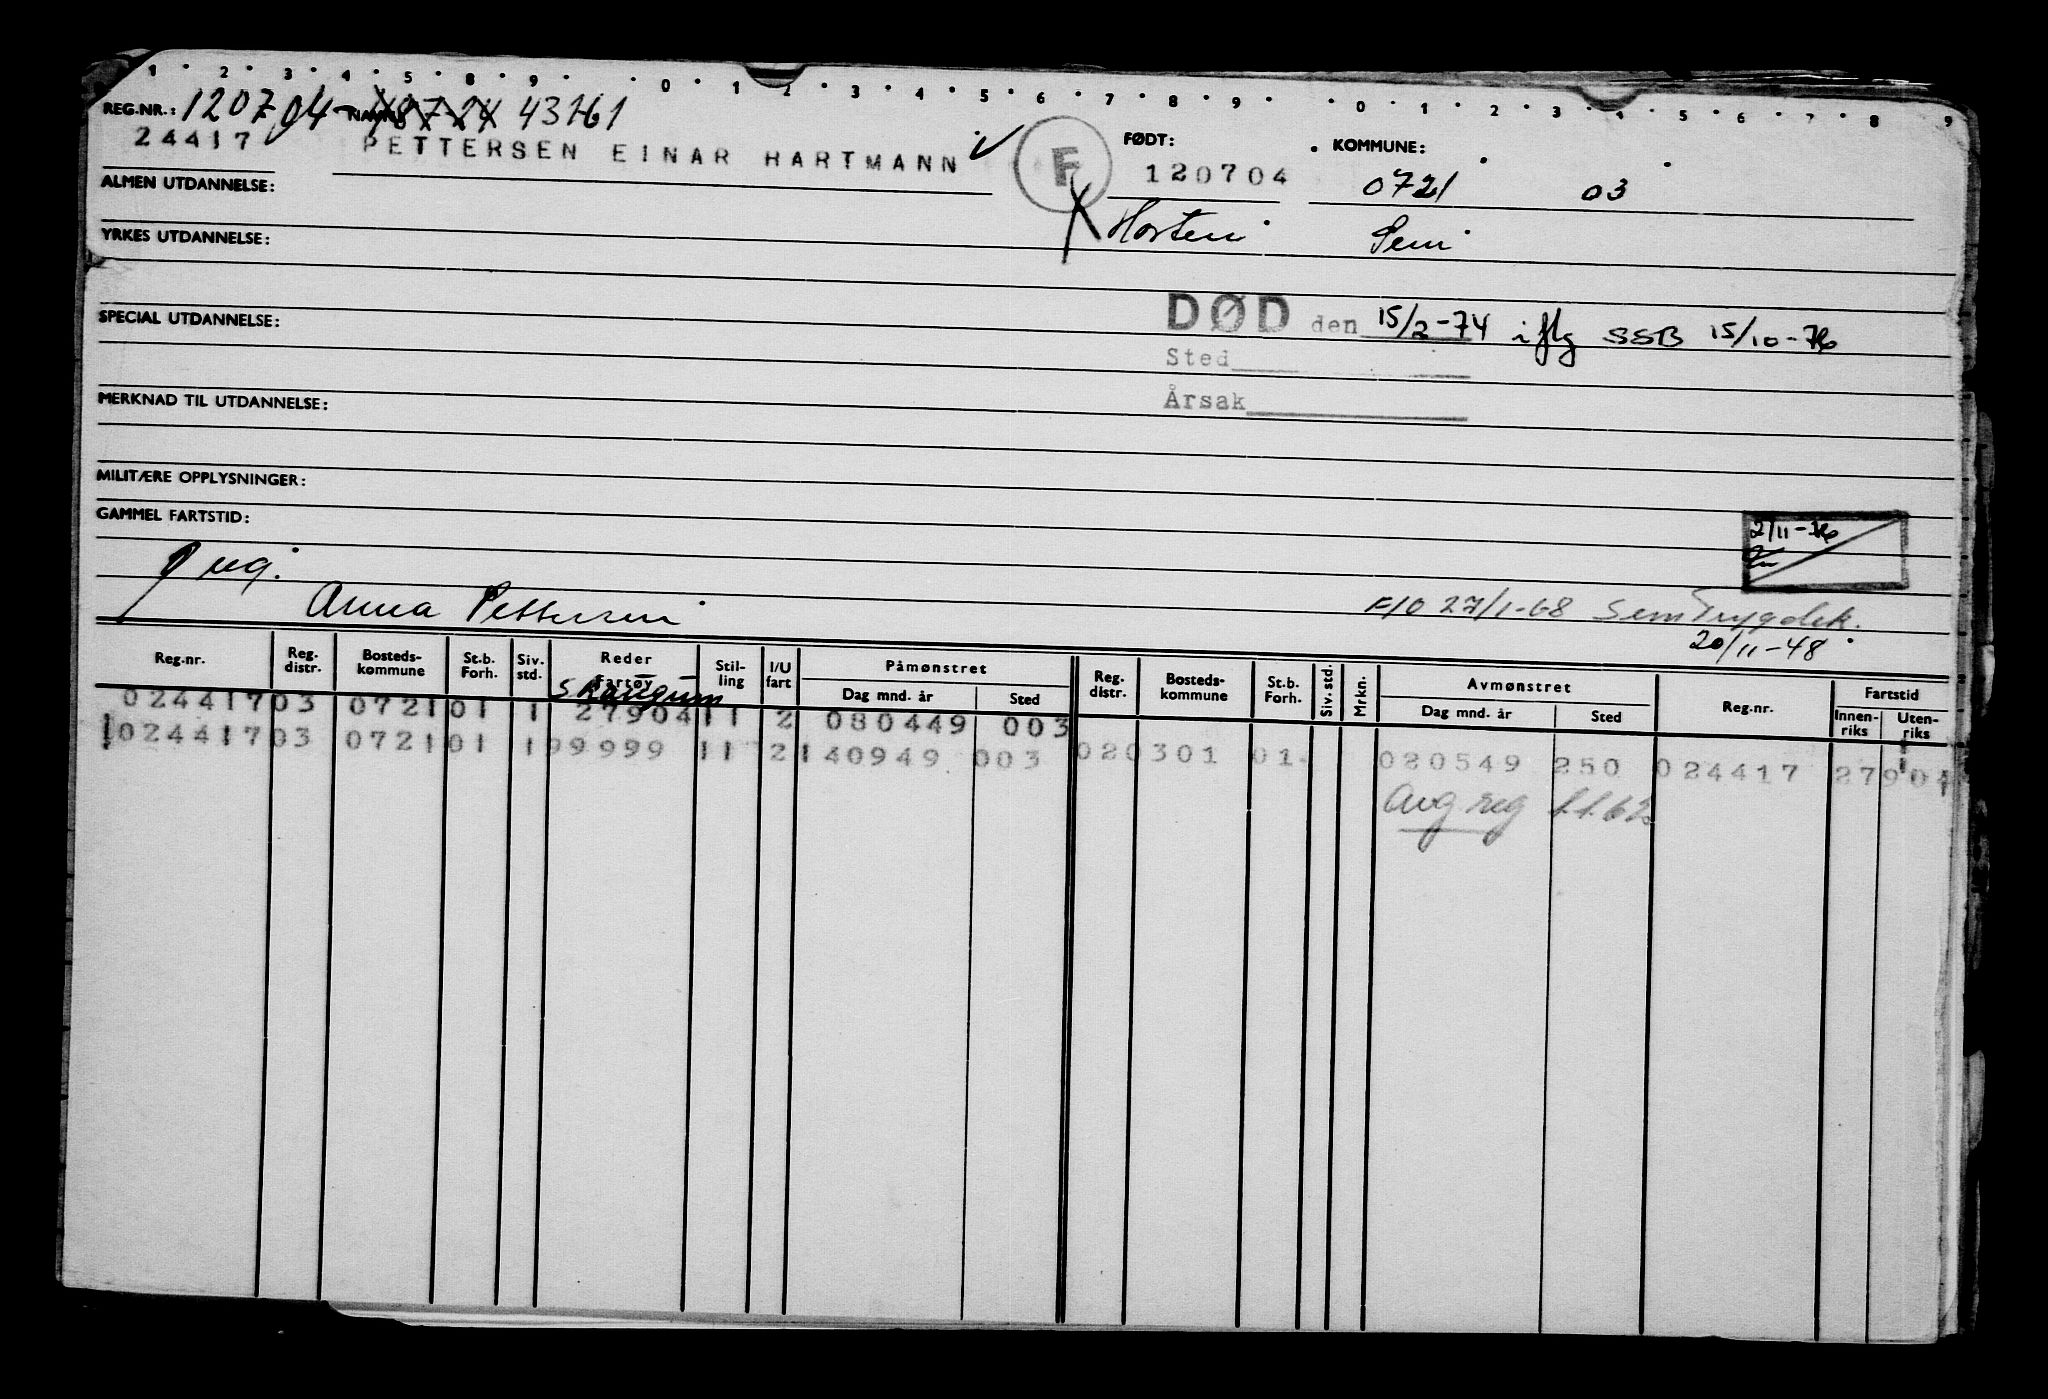 1 2 3 4 5 8 9 0 1 2 3 4 5 6 7 8 9 0 1 2 3 4 5 6 7 8 9
REG.NR.: 120704 - 48724 43161
24417 PETTERSEN EINAR HARTMANN ✓ F FØDT: 120704 KOMMUNE: 0721 03
ALMEN UTDANNELSE:
X Horten Sem
YRKES UTDANNELSE:
DØD den 15/2-74 iflg SSB 15/10-76
SPECIAL UTDANNELSE:
Sted
Årsak
MERKNAD TIL UTDANNELSE:
MILITÆRE OPPLYSNINGER:
GAMMEL FARTSTID:
2/11-76
Anna Pettersen
F10 27/1-68 Sem Trygdek.
20/11-48
Reg.nr. Reg. distr. Bosteds-kommune St.b. Forh. Siv. std. Reder Fartøy Stil-ling I/U fart Påmønstret Dag mnd. år Sted Reg. distr. Bosteds-kommune St.b. Forh. Siv. std. Mrkn. Avmønstret Dag mnd. år Sted Reg.nr. Fartstid Innen-riks Uten-riks
Skaugum
024417 03 0721 01 1 27904 11 2 080449 003
1 024417 03 0721 01 1 99999 11 2 140949 003 02 0301 01 020549 250 024417 27904 1
Avg reg 1.1.62